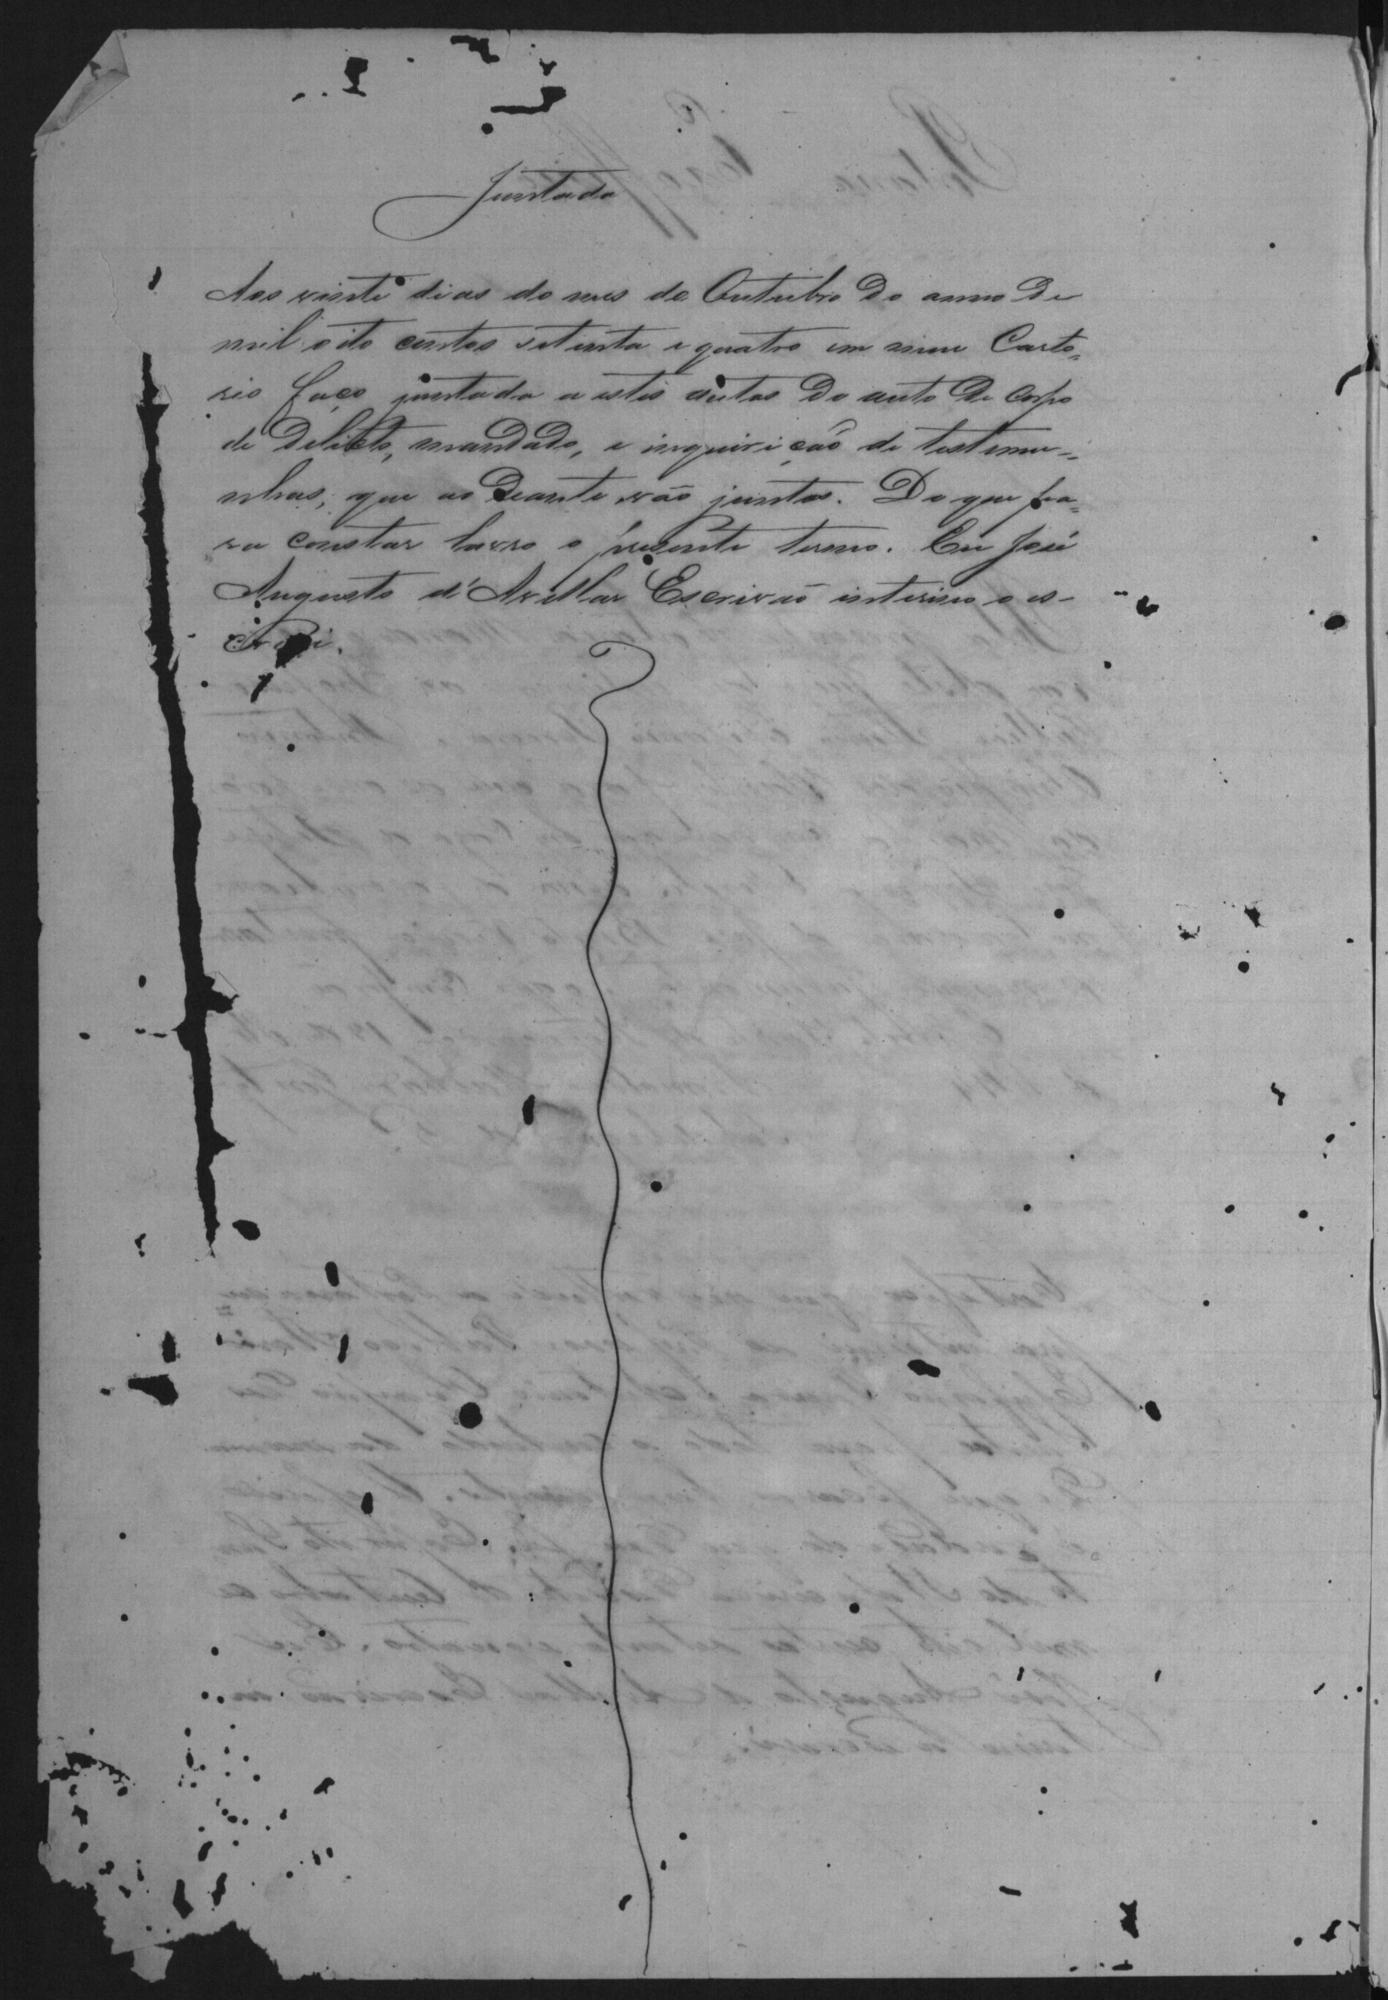 Juntada
Aos vinte dias do mes de Outubro do anno de
mil oito centos setenta e quatro em meu Carto-
rio faço juntada a estes autos do auto de corpo
de delicto, mandado, e inquirição de testemu-
nhas, que ao deante vão juntos. Do que pa-
ra constar lavro o presente termo. Eu José
Augusto d'Avellar Escrivão interino o es-
crevi.